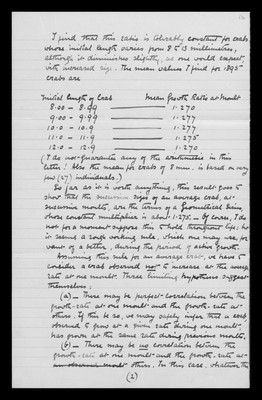 I find that this ratio is tolerably constant for crabs
whose initial length varies from 8 to 13 millimetres,
although it diminishes slightly, as one would expect,
with increased size. The mean values I find for 1895
crabs are
Initial length of Crab Mean Growth Ratio at Moult
8.00 — 8.99 1.270
9.00 — 9.99 1.277
10.0 — 10.9 1.277
11.0 — 11.9 1.275
12.0 — 12.9 1.270
(I do not guarantee any of the arithmetic in this
letter: Also the mean for crabs of 8 mm. is based on very
few (27) individuals.)
So far as it is worth anything, this result goes to
show that the successive sizes of an average crab, at
successive moults, are the terms of a Geometrical Series,
whose constant multiplier is about 1.275. Of course, I do
not for a moment suppose this to hold throughout life: but
it seems a rough working rule, which one may use, for
want of a better, during the period of active growth.
Assuming this rule for an average crab, we have to
consider a crab observed not to increase at the average
rate at one moult. Three limiting hypotheses suggest
themselves:
(a) — There may be perfect correlation between the
growth-rate at one moult and the growth-rate at
others. If this be so, we may safely infer that a crab
observed to grow at a given rate during one moult,
has grown at the same rate during previous moults.
(b) — There may be no correlation between the
growth-rate at one moult and the growth-rate at
others. In this case, whatever the
(2)